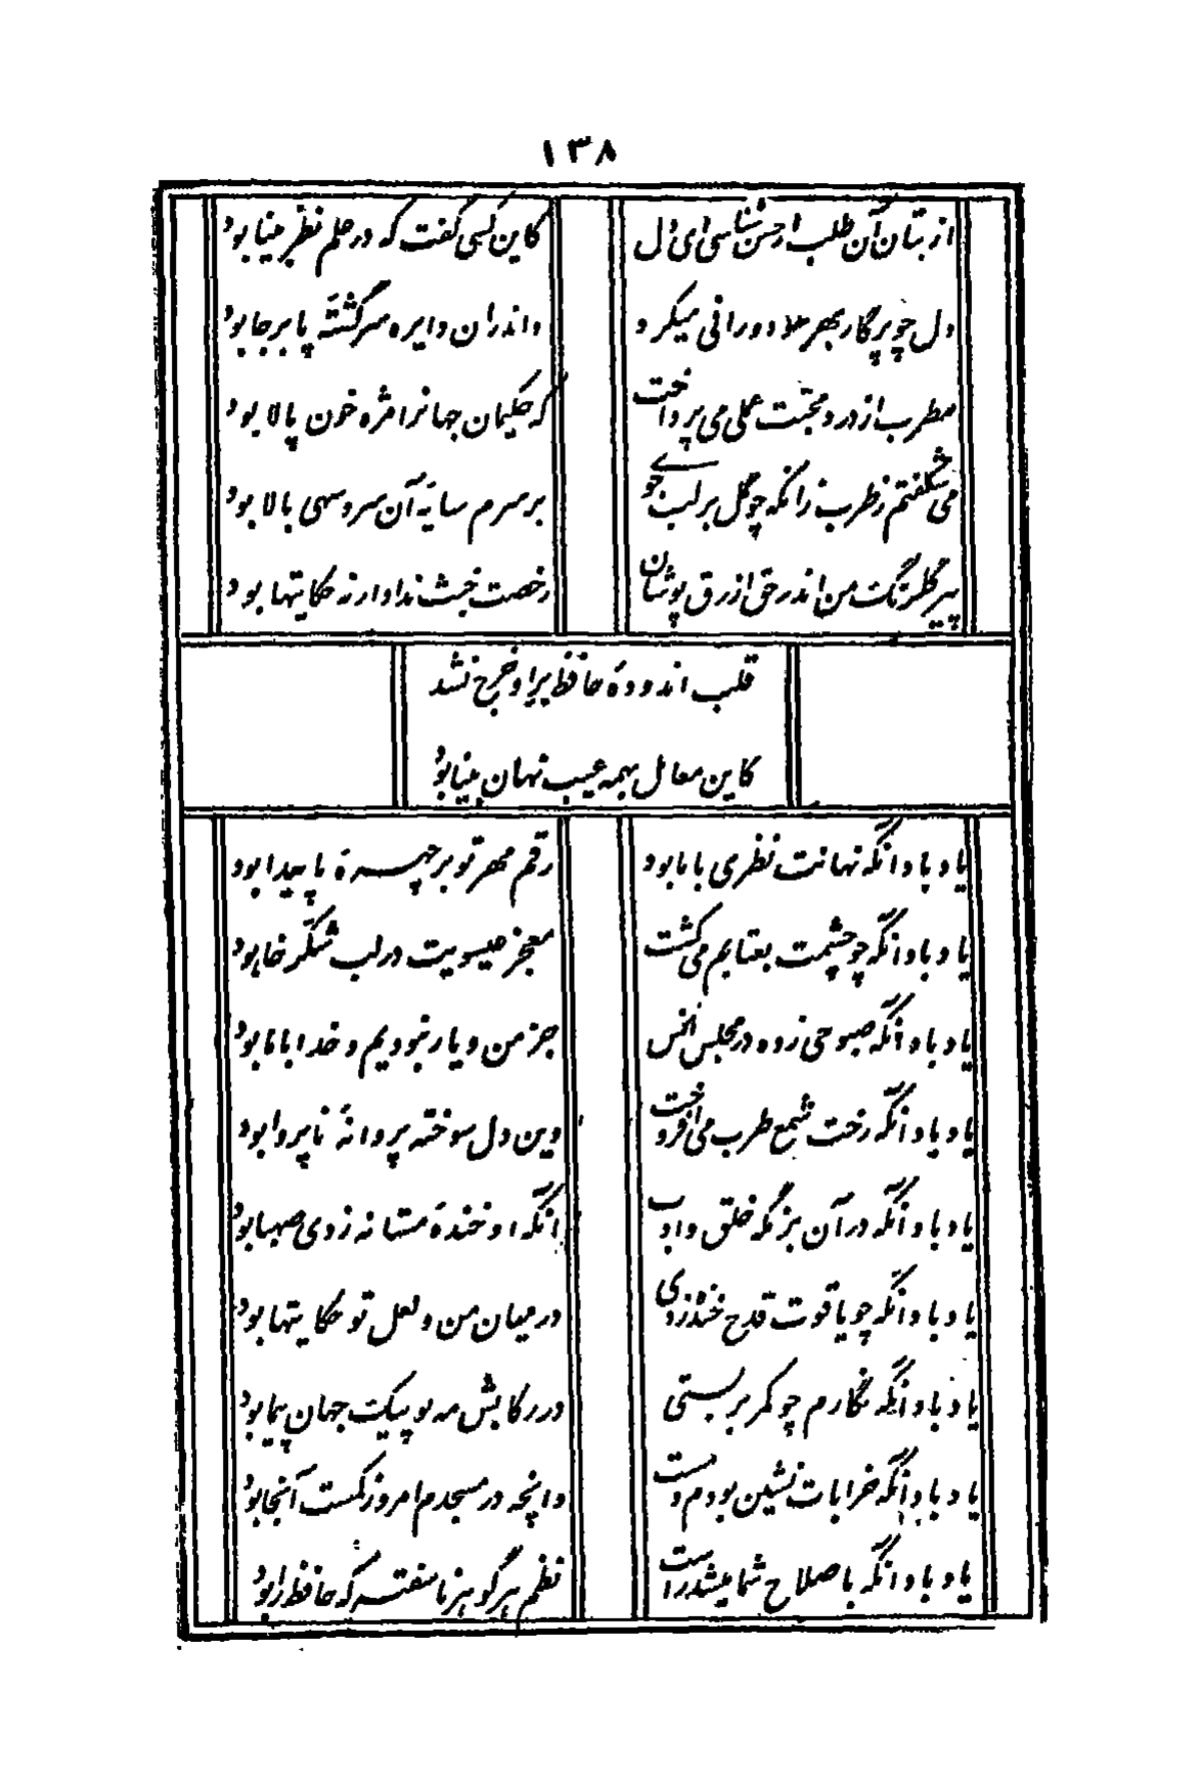 ۱۳۸
از بتان آن طلب ار حسن شناسی ای دل
کاین کسی گفت که در علم نظر بینا بود
دل چو پرگار بهر سو دورانی میکرد
واندران دایره سرگشتهٔ پا برجا بود
مطرب از درد محبّت عملی می پرداخت
که حکیمان جهانرا مژه خون پالا بود
می شکفتم ز طرب زانکه چو گل بر لب جوی
بر سرم سایهٔ آن سرو سهی بالا بود
پیر گلرنگ من اندر حق ازرق پوشان
رخصت خبث نداد ارنه حکایتها بود
قلب اندودهٔ حافظ بر او خرج نشد
کاین معامل بهمه عیب نهان بینا بود
یاد باد آنکه نهانت نظری با ما بود
رقم مهر تو بر چهرهٔ ما پیدا بود
یاد باد آنکه چو چشمت بعتابم می کشت
معجز عیسویت در لب شکّر خا بود
یاد باد آنکه صبوحی زده در مجلس انس
جز من و یار نبودیم و خدا با ما بود
یاد باد آنکه رخت شمع طرب می افروخت
وین دل سوخته پروانهٔ نا پروا بود
یاد باد آنکه در آن بزمگه خلق و ادب
آنکه او خندهٔ مستانه زدی صهبا بود
یاد باد آنکه چو یاقوت قدح خنده زدی
در میان من و لعل تو حکایتها بود
یاد باد آنکه نگارم چو کمر بر بستی
در رکابش مه نو پیک جهان پیما بود
یاد باد آنکه خرابات نشین بودم و مست
وانچه در مسجدم امروز کمست آنجا بود
یاد باد آنکه با صلاح شما میشد راست
نظم هر گوهر ناسفته که حافظ را بود